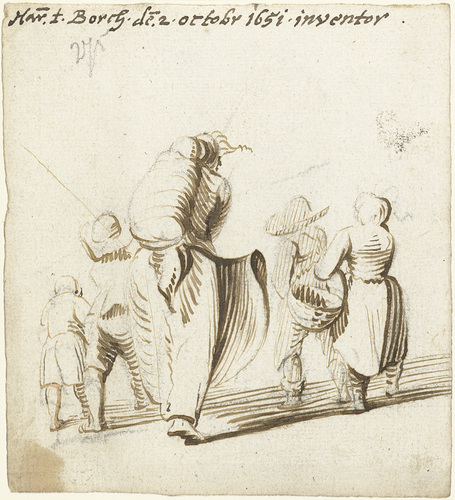 Har. t. Borch. de. 2. octobr 1651. inventor